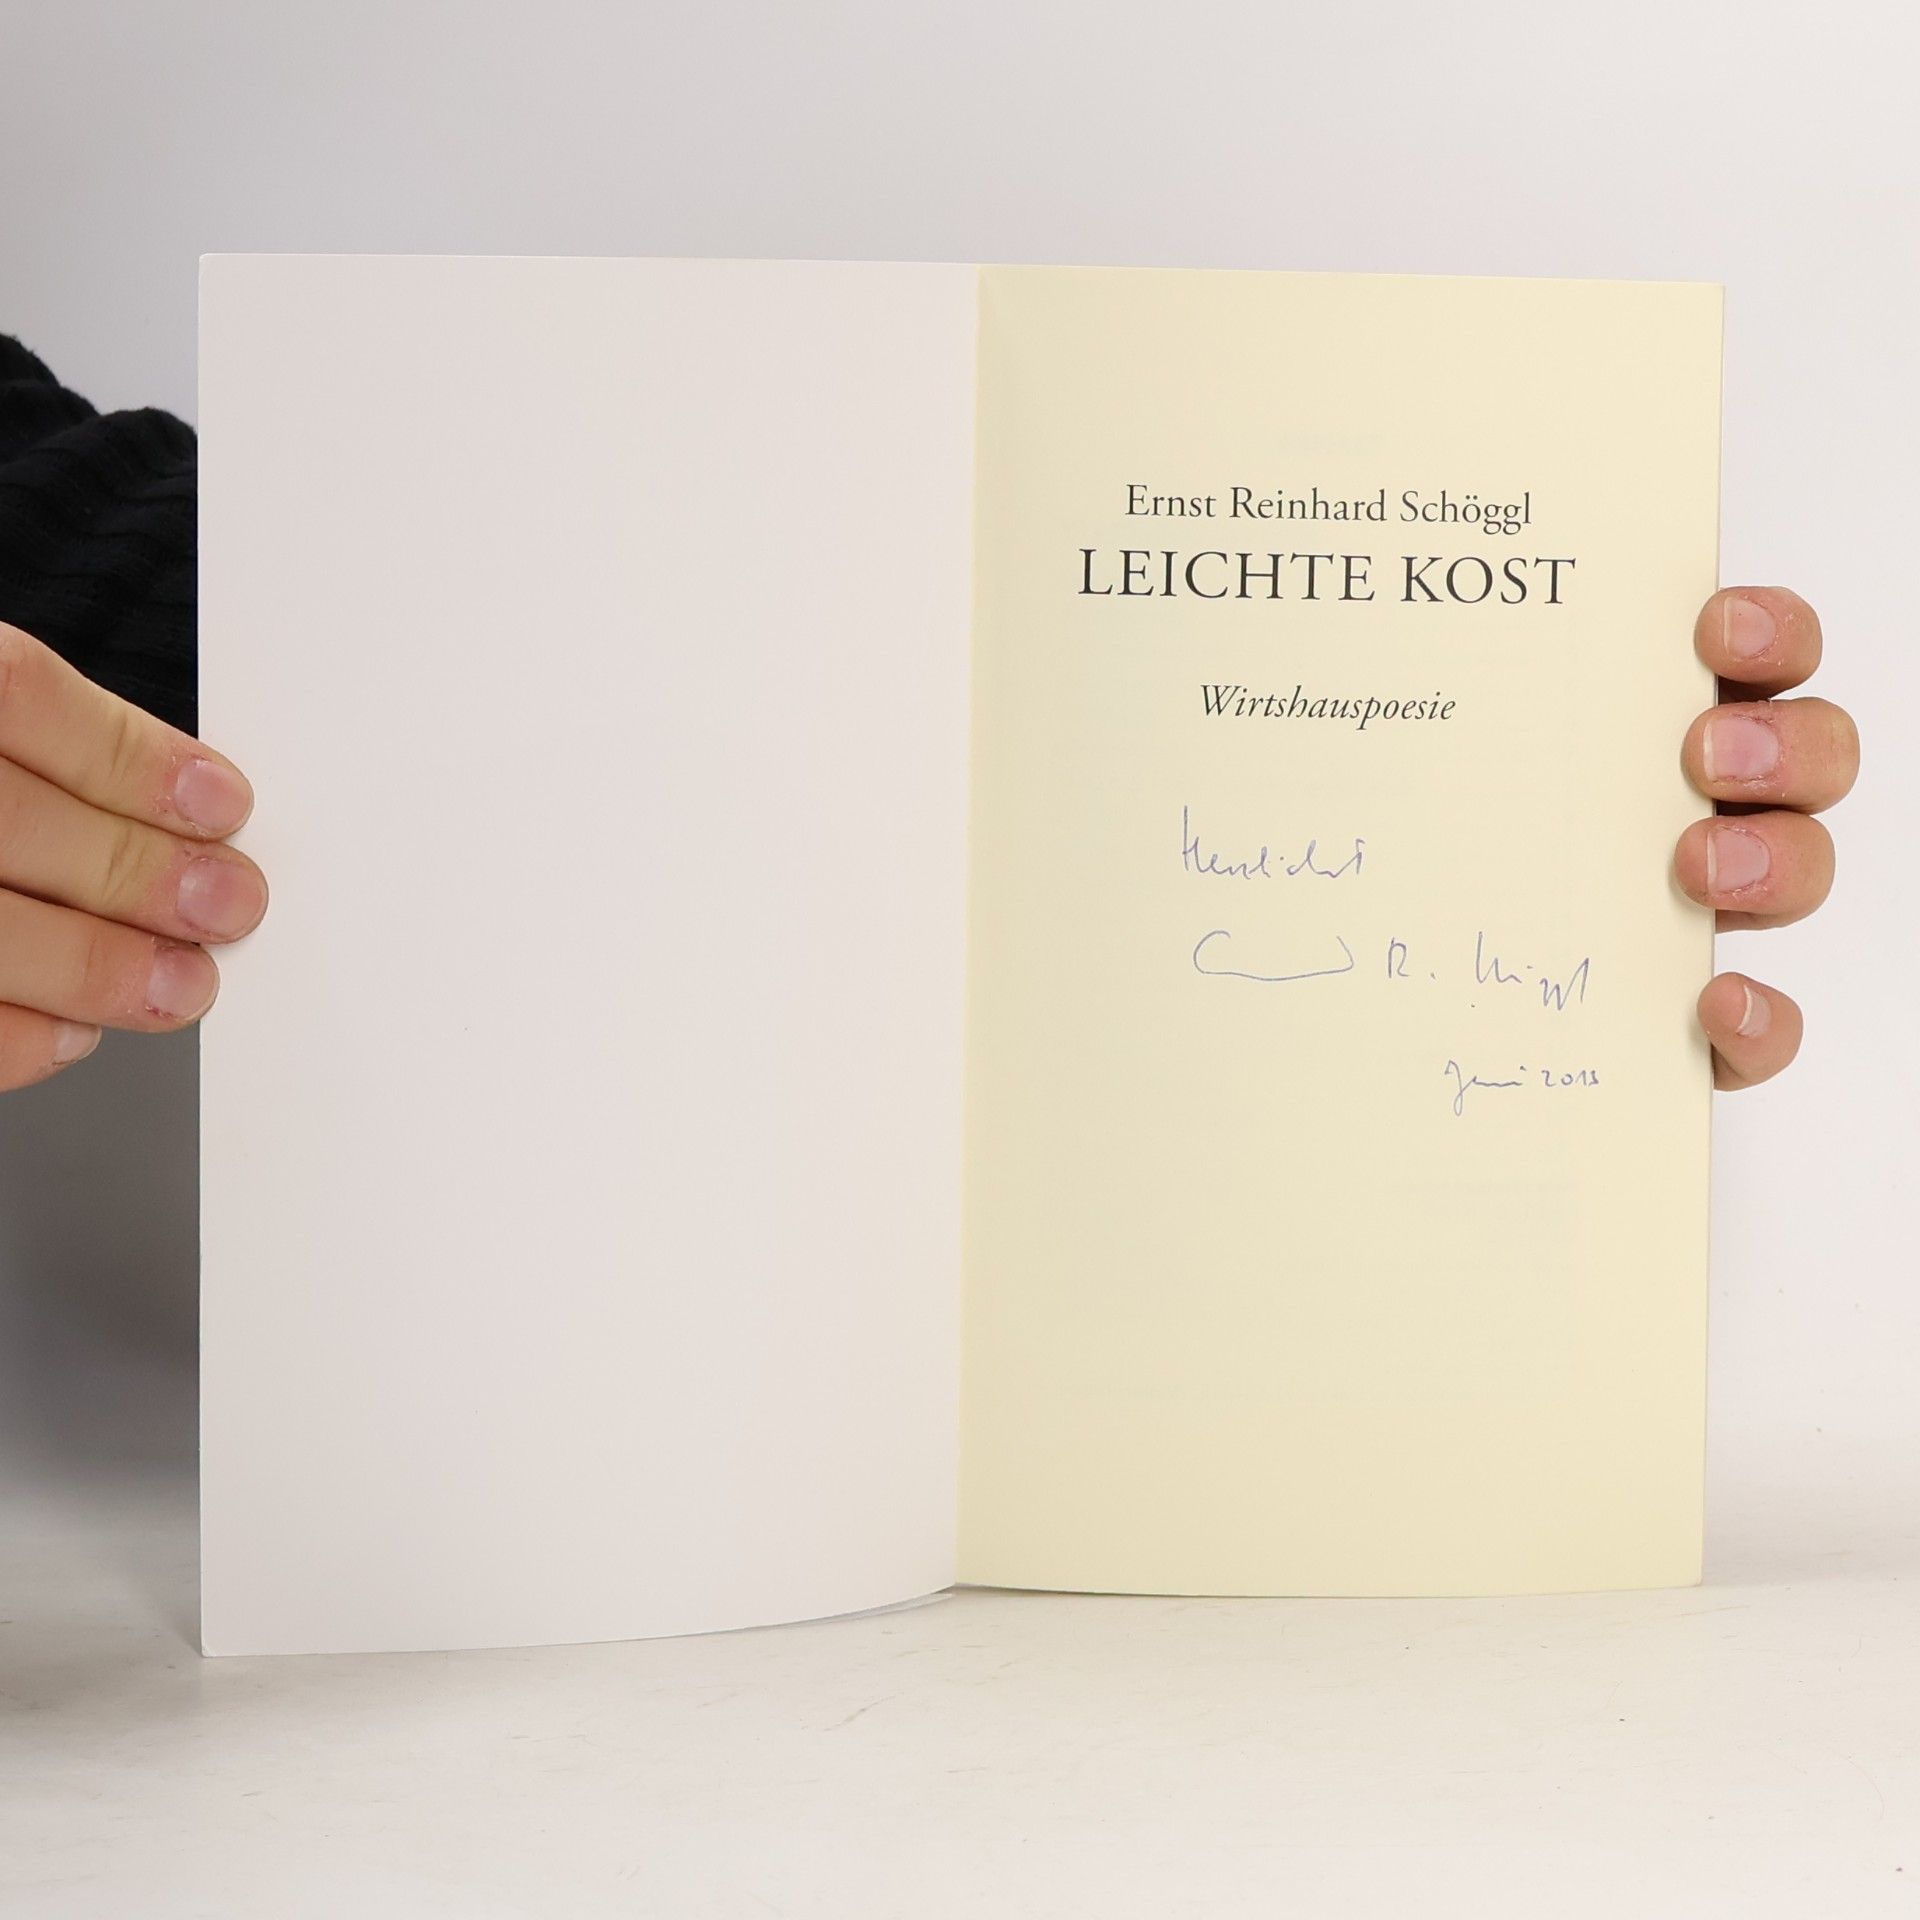 Ernst Reinhard Schöggl
LEICHTE KOST
Wirtshauspoesie
Herzlichst
R. Schöggl
Juni 2013